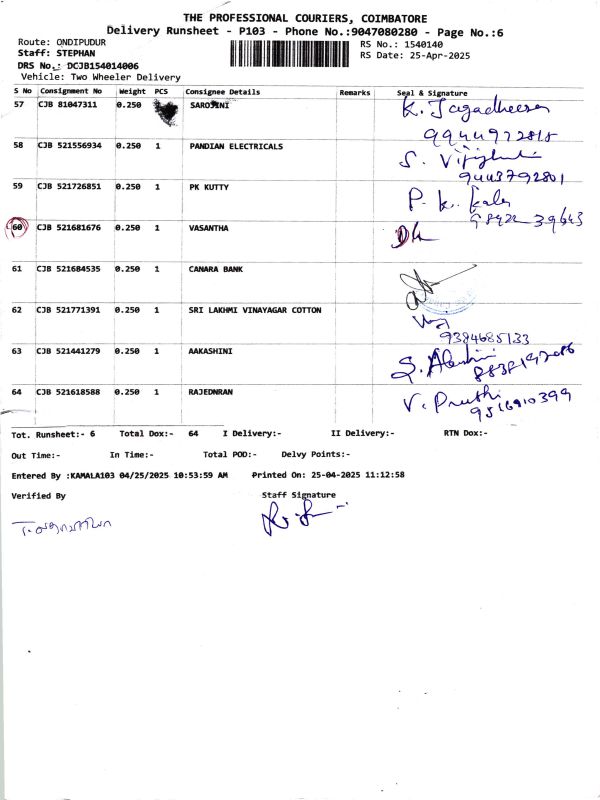 THE PROFESSIONAL COURIERS, COIMBATORE
Delivery Runsheet - P103 - Phone No.:9047080280 - Page No.:6
Route: ONDIPUDUR
Staff: STEPHAN
DRS No.: DCJB154014006
Vehicle: Two Wheeler Delivery
RS No.: 1540140
RS Date: 25-Apr-2025
S No Consignment No Weight PCS Consignee Details Remarks Seal & Signature
57 CJB 81047311 0.250 SAROJINI K. Jagadheesan
9944972818
58 CJB 521556934 0.250 1 PANDIAN ELECTRICALS S.
9443792801
59 CJB 521726851 0.250 1 PK KUTTY P. K. Kala
60 CJB 521681676 0.250 1 VASANTHA
61 CJB 521684535 0.250 1 CANARA BANK
62 CJB 521771391 0.250 1 SRI LAKHMI VINAYAGAR COTTON
9384685133
63 CJB 521441279 0.250 1 AAKASHINI
64 CJB 521618588 0.250 1 RAJEDNRAN V. Pruthi
9516910399
Tot. Runsheet:- 6 Total Dox:- 64 I Delivery:- II Delivery:- RTN Dox:-
Out Time:- In Time:- Total POD:- Delvy Points:-
Entered By :KAMALA103 04/25/2025 10:53:59 AM Printed On: 25-04-2025 11:12:58
Verified By Staff Signature